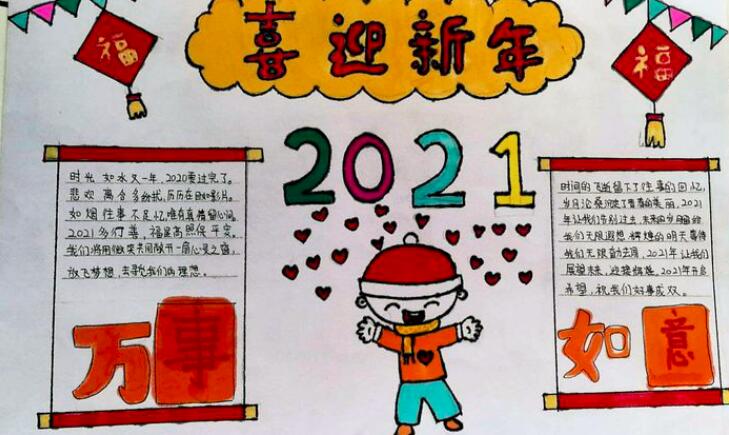 喜迎新年
福
福
2021
时光如水又一年,2020要过完了。
悲欢离合多纷扰,历历在目如影片。
如烟往事不足忆,唯有真情留心间。
2021多行善,福星高照保平安。
我们将用微笑共同敞开一扇心灵之窗,
放飞梦想,去歌我们的理想。
万事
时间的飞逝留下了往事的回忆,
岁月沧桑沉淀了青春的美丽。2021
年让我们告别过去,未来的岁月留给
我们无限遐想,辉煌的明天
我们无限 2021年让我们
展望未来,迎接辉煌。2021年开启
希望,祝我们好事成双。
如意